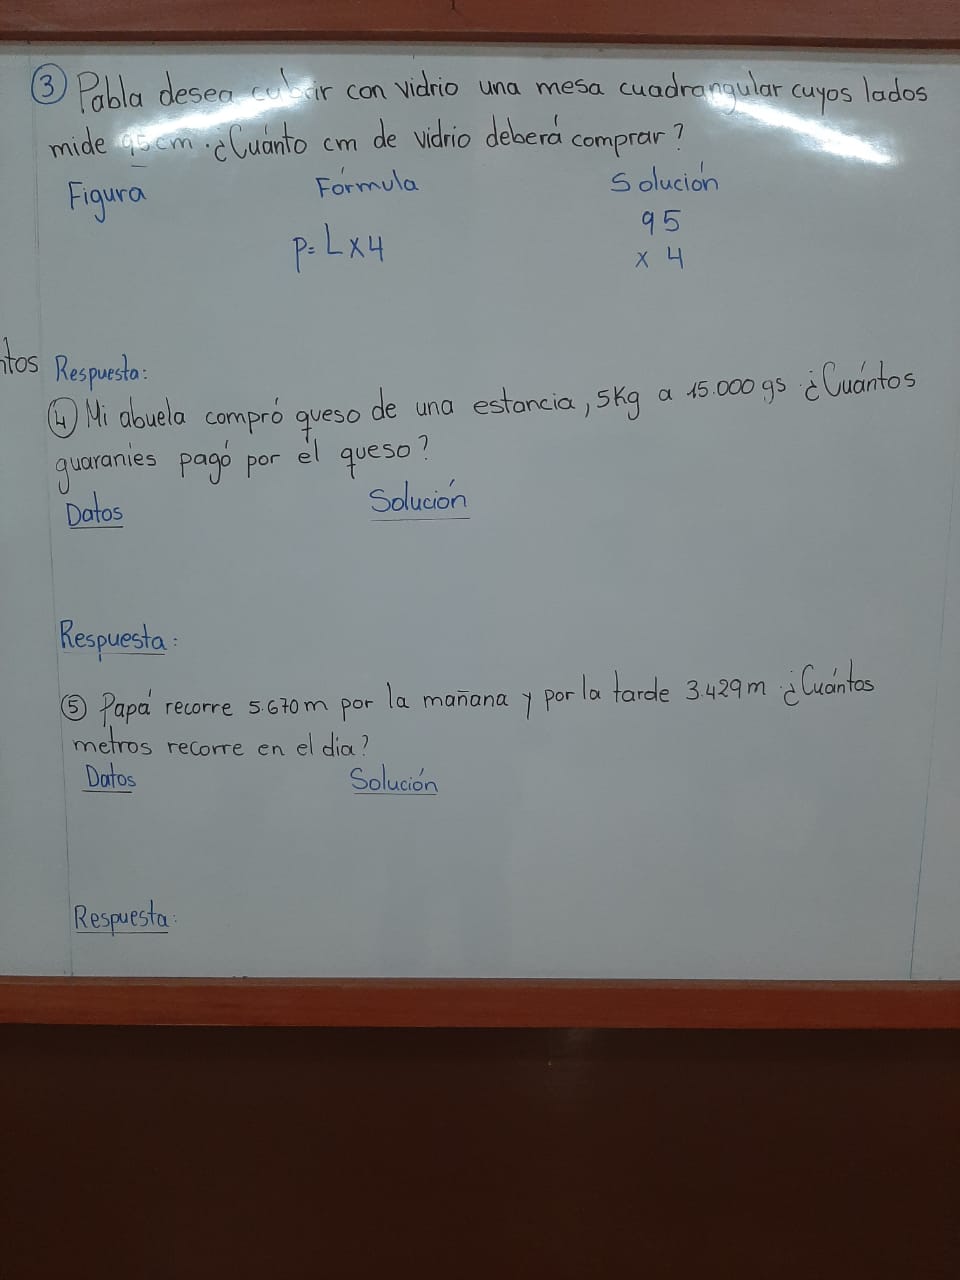 ③ Pabla desea cubrir con vidrio una mesa cuadrangular cuyos lados
mide 95cm. ¿Cuánto cm de vidrio deberá comprar?
Figura Fórmula Solución
P= L x 4 95
x 4
ntos Respuesta:
④ Mi abuela compró queso de una estancia, 5Kg a 15.000 gs. ¿Cuántos
guaranies pagó por el queso?
Datos Solución
Respuesta:
⑤ Papá recorre 5.670m por la mañana y por la tarde 3.429m ¿Cuántos
metros recorre en el dia?
Datos Solución
Respuesta: